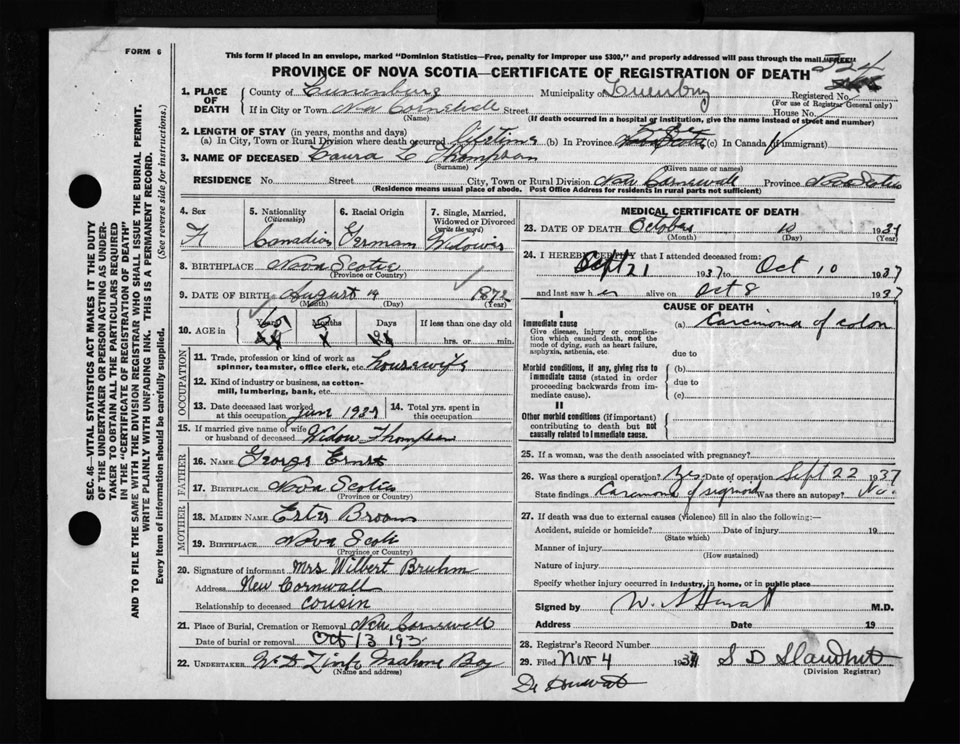 FORM 6
This form if placed in an envelope, marked "Dominion Statistics—Free, penalty for improper use $300," and properly addressed will pass through the mail "FREE"
PROVINCE OF NOVA SCOTIA—CERTIFICATE OF REGISTRATION OF DEATH
1. PLACE OF DEATH
County of Lunenburg Municipality of Registered No.
(For use of Registrar General only)
If in City or Town New Street House No.
(Name) (If death occurred in a hospital or institution, give the name instead of street and number)
2. LENGTH OF STAY (in years, months and days)
(a) In City, Town or Rural Division where death occurred (b) In Province (c) In Canada (if immigrant)
3. NAME OF DECEASED Laura Thompson
(Surname) (Given name or names)
RESIDENCE No. Street City, Town or Rural Division New Province Nova Scotia
(Residence means usual place of abode. Post Office Address for residents in rural parts not sufficient)
4. Sex F
5. Nationality (Citizenship) Canadian
6. Racial Origin German
7. Single, Married, Widowed or Divorced (write the word)
8. BIRTHPLACE Nova Scotia
(Province or Country)
9. DATE OF BIRTH August 19 1872
(Month) (Day) (Year)
10. AGE in Years Months Days If less than one day old
hrs. or min.
OCCUPATION
11. Trade, profession or kind of work as spinner, teamster, office clerk, etc. housewife
12. Kind of industry or business, as cotton-mill, lumbering, bank, etc.
13. Date deceased last worked at this occupation
14. Total yrs. spent in this occupation
15. If married give name of wife or husband of deceased Thompson
FATHER
16. NAME George Ernst
17. BIRTHPLACE Nova Scotia
(Province or Country)
MOTHER
18. MAIDEN NAME
19. BIRTHPLACE Nova
(Province or Country)
20. Signature of informant Mrs Wilbert Bruhm
Address New Cornwall
Relationship to deceased cousin
21. Place of Burial, Cremation or Removal New
Date of burial or removal Oct 13 193
22. UNDERTAKER Mahone Bay
(Name and address)
MEDICAL CERTIFICATE OF DEATH
23. DATE OF DEATH October 10 1937
(Month) (Day) (Year)
24. I HEREBY CERTIFY that I attended deceased from:
Sept 21 1937 to Oct 10 1937
and last saw her alive on Oct 8 1937
CAUSE OF DEATH
I
Immediate cause (a) Carcinoma of colon
Give disease, injury or complication which caused death, not the mode of dying, such as heart failure, asphyxia, asthenia, etc.
due to
Morbid conditions, if any, giving rise to immediate cause (stated in order proceeding backwards from immediate cause).
(b)
due to
(c)
II
Other morbid conditions (if important) contributing to death but not causally related to immediate cause.
25. If a woman, was the death associated with pregnancy?
26. Was there a surgical operation? Yes Date of operation Sept 22 1937
State findings Carcinoma of Was there an autopsy? No
27. If death was due to external causes (violence) fill in also the following:—
Accident, suicide or homicide? Date of injury 19
(State which)
Manner of injury
(How sustained)
Nature of injury
Specify whether injury occurred in industry, in home, or in public place
Signed by M.D.
Address Date 19
28. Registrar's Record Number
29. Filed Nov 4 1937 S D
(Division Registrar)
SEC. 46—VITAL STATISTICS ACT MAKES IT THE DUTY
OF THE UNDERTAKER OR PERSON ACTING AS UNDER-
TAKER TO OBTAIN ALL THE PARTICULARS REQUIRED
IN THE "CERTIFICATE OF REGISTRATION OF DEATH"
AND TO FILE THE SAME WITH THE DIVISION REGISTRAR WHO SHALL ISSUE THE BURIAL PERMIT.
WRITE PLAINLY WITH UNFADING INK. THIS IS A PERMANENT RECORD.
Every item of information should be carefully supplied. (See reverse side for instructions.)